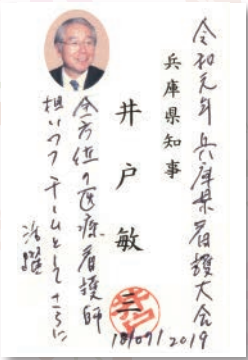 令和元年 兵庫県看護大会
兵庫県知事
井戸敏三
全方位の医療看護師
担いつつ チームとしてさらに
活躍
18/09/2019